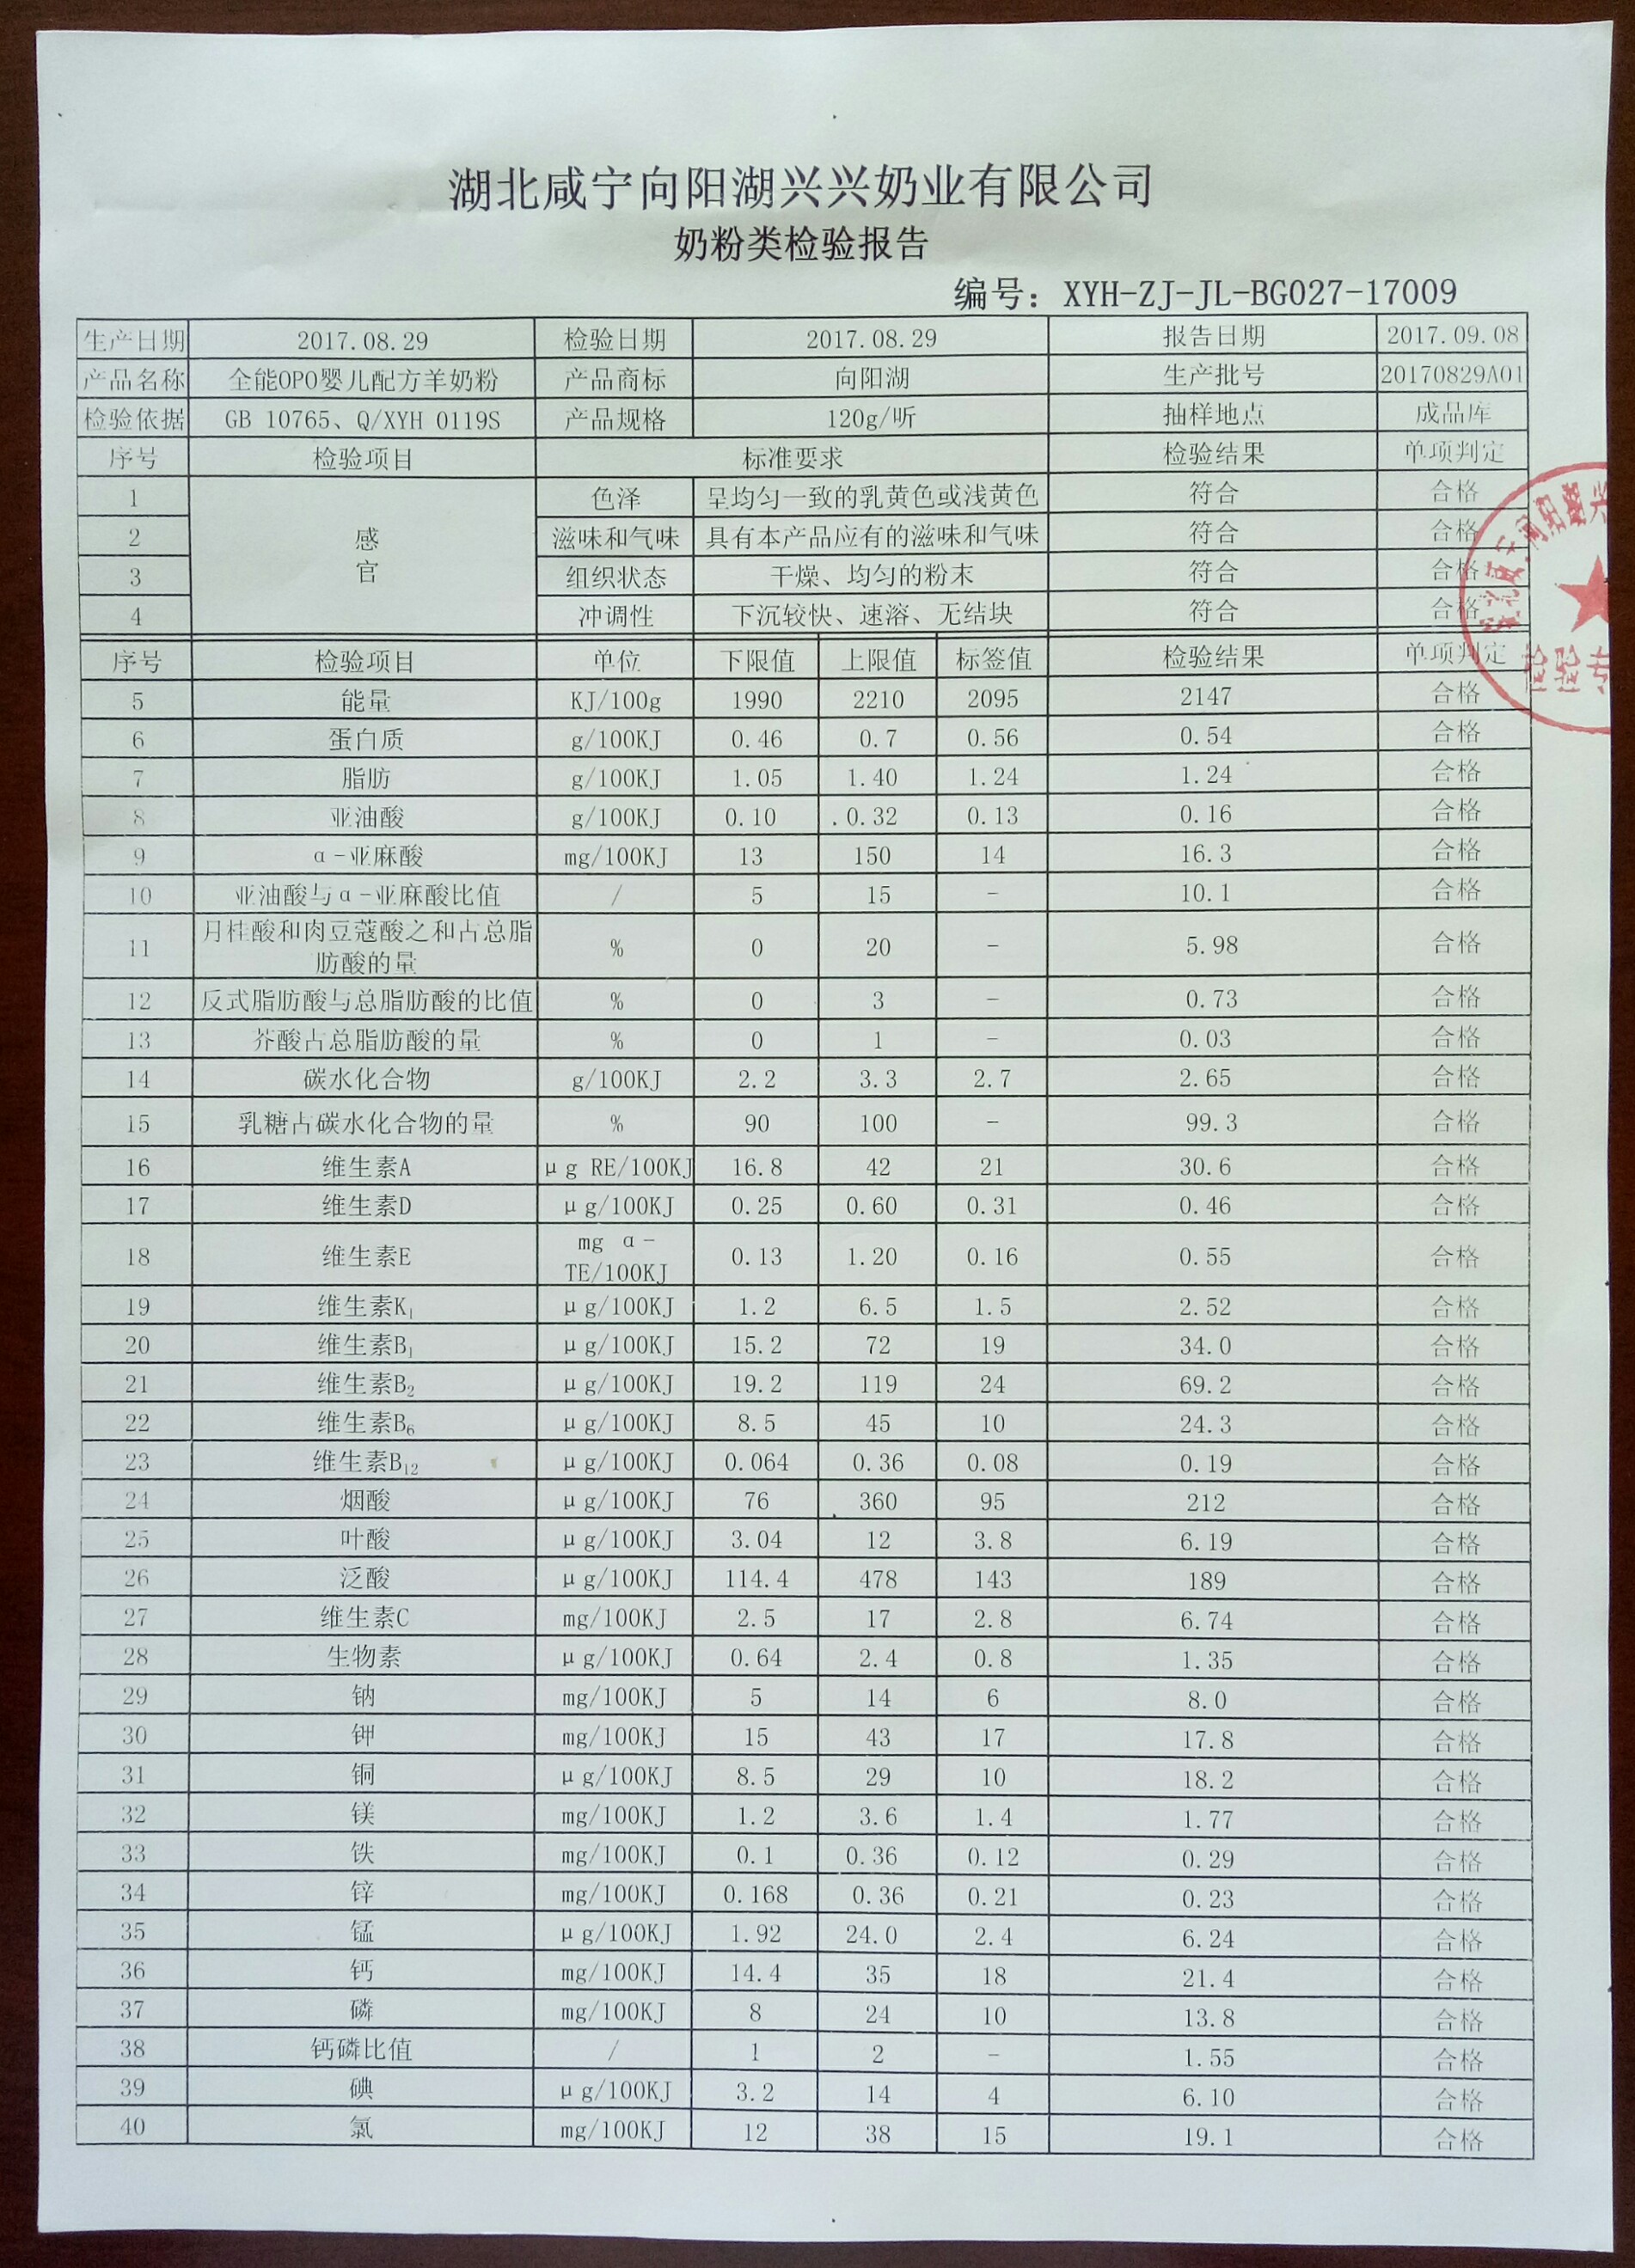 湖北咸宁向阳湖兴兴奶业有限公司
奶粉类检验报告
编号：XYH-ZJ-JL-BG027-17009
生产日期 2017.08.29 检验日期 2017.08.29 报告日期 2017.09.08
产品名称 全能OPO婴儿配方羊奶粉 产品商标 向阳湖 生产批号 20170829A01
检验依据 GB 10765、Q/XYH 0119S 产品规格 120g/听 抽样地点 成品库
序号 检验项目 标准要求 检验结果 单项判定
1 感官 色泽 呈均匀一致的乳黄色或浅黄色 符合 合格
2 滋味和气味 具有本产品应有的滋味和气味 符合 合格
3 组织状态 干燥、均匀的粉末 符合 合格
4 冲调性 下沉较快、速溶、无结块 符合 合格
序号 检验项目 单位 下限值 上限值 标签值 检验结果 单项判定
5 能量 KJ/100g 1990 2210 2095 2147 合格
6 蛋白质 g/100KJ 0.46 0.7 0.56 0.54 合格
7 脂肪 g/100KJ 1.05 1.40 1.24 1.24 合格
8 亚油酸 g/100KJ 0.10 0.32 0.13 0.16 合格
9 α-亚麻酸 mg/100KJ 13 150 14 16.3 合格
10 亚油酸与α-亚麻酸比值 / 5 15 - 10.1 合格
11 月桂酸和肉豆蔻酸之和占总脂肪酸的量 % 0 20 - 5.98 合格
12 反式脂肪酸与总脂肪酸的比值 % 0 3 - 0.73 合格
13 芥酸占总脂肪酸的量 % 0 1 - 0.03 合格
14 碳水化合物 g/100KJ 2.2 3.3 2.7 2.65 合格
15 乳糖占碳水化合物的量 % 90 100 - 99.3 合格
16 维生素A μg RE/100KJ 16.8 42 21 30.6 合格
17 维生素D μg/100KJ 0.25 0.60 0.31 0.46 合格
18 维生素E mg α-TE/100KJ 0.13 1.20 0.16 0.55 合格
19 维生素K₁ μg/100KJ 1.2 6.5 1.5 2.52 合格
20 维生素B₁ μg/100KJ 15.2 72 19 34.0 合格
21 维生素B₂ μg/100KJ 19.2 119 24 69.2 合格
22 维生素B₆ μg/100KJ 8.5 45 10 24.3 合格
23 维生素B₁₂ μg/100KJ 0.064 0.36 0.08 0.19 合格
24 烟酸 μg/100KJ 76 360 95 212 合格
25 叶酸 μg/100KJ 3.04 12 3.8 6.19 合格
26 泛酸 μg/100KJ 114.4 478 143 189 合格
27 维生素C mg/100KJ 2.5 17 2.8 6.74 合格
28 生物素 μg/100KJ 0.64 2.4 0.8 1.35 合格
29 钠 mg/100KJ 5 14 6 8.0 合格
30 钾 mg/100KJ 15 43 17 17.8 合格
31 铜 μg/100KJ 8.5 29 10 18.2 合格
32 镁 mg/100KJ 1.2 3.6 1.4 1.77 合格
33 铁 mg/100KJ 0.1 0.36 0.12 0.29 合格
34 锌 mg/100KJ 0.168 0.36 0.21 0.23 合格
35 锰 μg/100KJ 1.92 24.0 2.4 6.24 合格
36 钙 mg/100KJ 14.4 35 18 21.4 合格
37 磷 mg/100KJ 8 24 10 13.8 合格
38 钙磷比值 / 1 2 - 1.55 合格
39 碘 μg/100KJ 3.2 14 4 6.10 合格
40 氯 mg/100KJ 12 38 15 19.1 合格